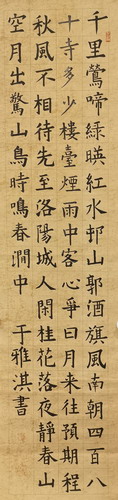 千里鶯啼綠暎紅水邨山郭酒旗風南朝四百八
十寺多少樓臺煙雨中客心爭日月來往預期程
秋風不相待先至洛陽城人閑桂花落夜靜春山
空月出驚山鳥時鳴春澗中 于雅淇書